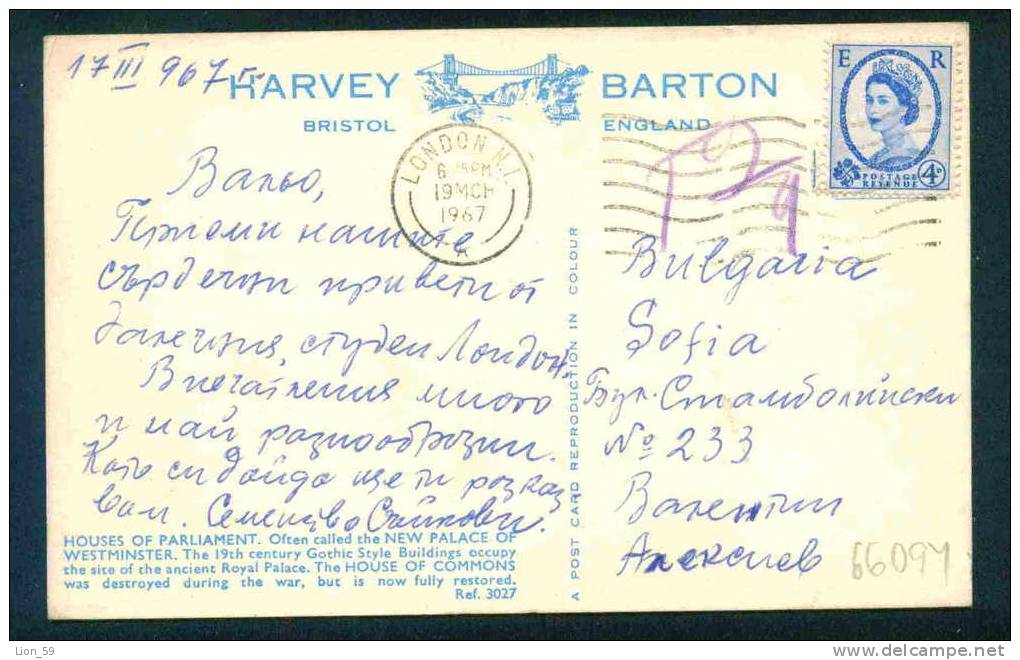 17 III 967 г.
HARVEY BARTON
BRISTOL ENGLAND
E R
POSTAGE
REVENUE
4D
LONDON N.1.
6 15 PM
19 MCH
1967
A
Ваньо,
Приеми нашите
сърдечни привети от
далечния, студен Лондон.
Впечатления много
и най разнообразни.
Като си дойда ще ти разказ
вам. Семейство Стайкови.
Bulgaria
Sofia
Бул. Стамболийски
№ 233
Валентин
Алексиев
66094
HOUSES OF PARLIAMENT. Often called the NEW PALACE OF
WESTMINSTER. The 19th century Gothic Style Buildings occupy
the site of the ancient Royal Palace. The HOUSE OF COMMONS
was destroyed during the war, but is now fully restored.
Ref. 3027
A POST CARD REPRODUCTION IN COLOUR
Lion_59
www.delcampe.net